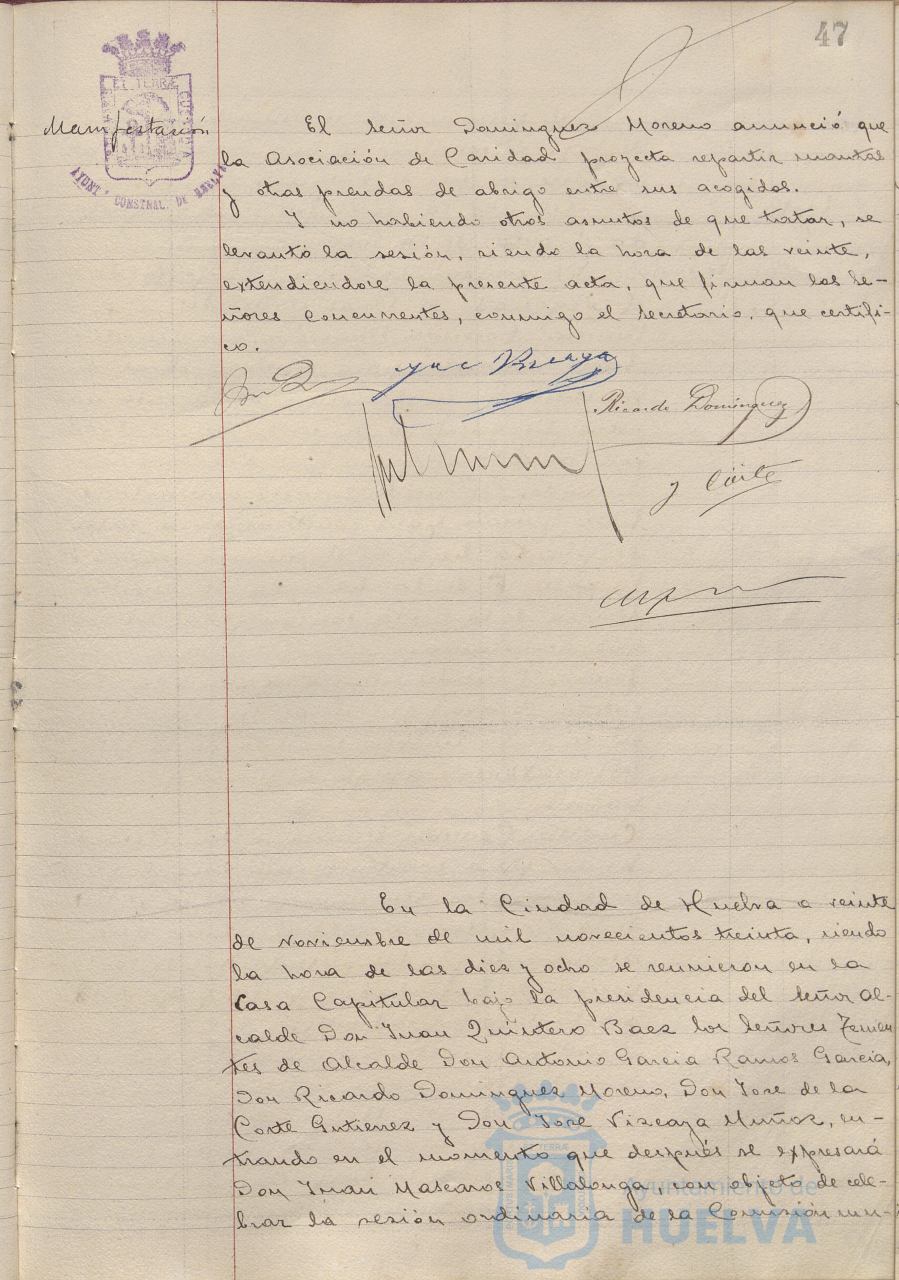 47
Manifestación
El señor Dominguez Moreno anunció que
la Asociación de Caridad proyecta repartir mantas
y otras prendas de abrigo entre sus acogidos.
Y no habiendo otros asuntos de que tratar, se
levantó la sesión, siendo la hora de las veinte,
extendiendose la presente acta, que firman los Se-
ñores Concurrentes, conmigo el Secretario, que certifi-
co.
Ricardo Dominguez
y Corte
En la Ciudad de Huelva a veinte
de noviembre de mil novecientos treinta, siendo
la hora de las diez y ocho se reunieron en la
Casa Capitular bajo la presidencia del Señor Al-
calde Don Juan Quintero Baez los Señores Tenien
tes de Alcalde Don Antonio Garcia Ramos García,
Don Ricardo Dominguez Moreno, Don Jose de la
Corte Gutierrez y Don Jose Vizcaya Muñoz, en-
trando en el momento que después se expresará
Don Juan Mascaros Villalonga, con objeto de cele-
brar la sesión ordinaria de la Comisión mun-
AYUNT. CONSTNAL. DE HUELVA
Ayuntamiento de
HUELVA